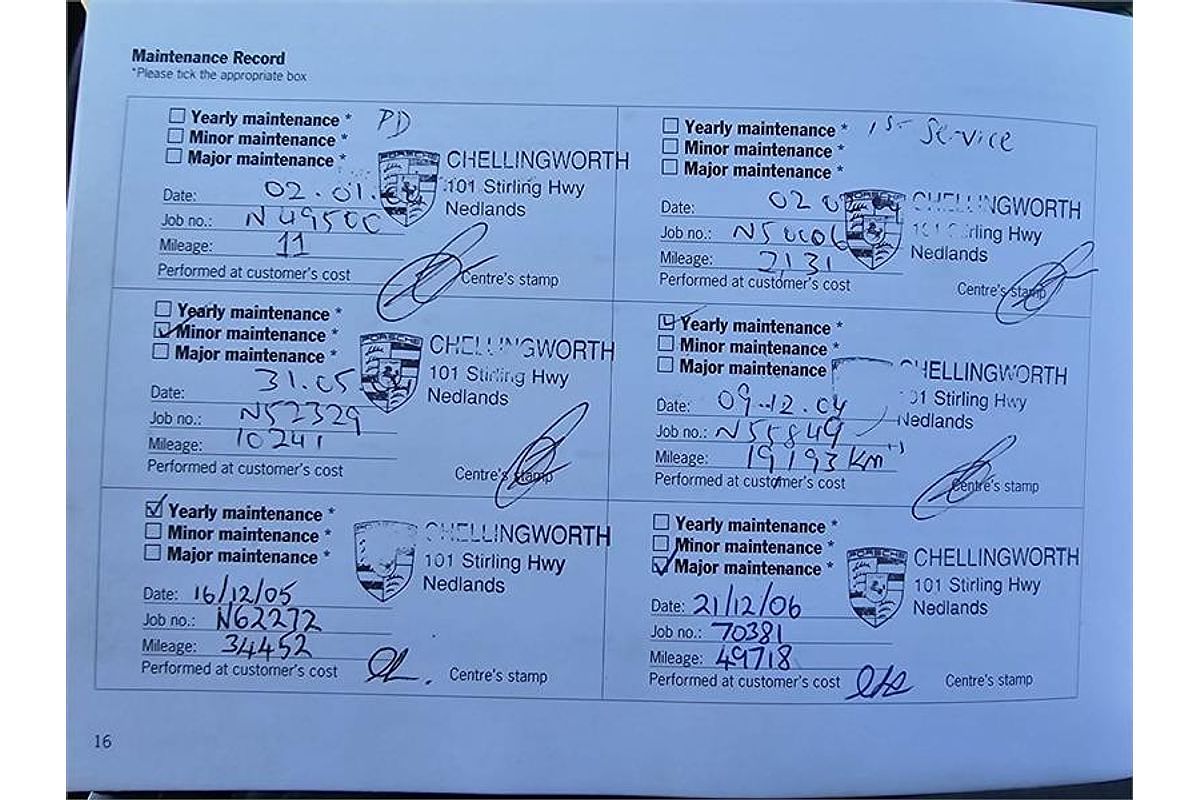 Maintenance Record
*Please tick the appropriate box
Yearly maintenance * PD
Minor maintenance *
Major maintenance *
PORSCHE
CHELLINGWORTH
101 Stirling Hwy
Nedlands
Date: 02.01.
Job no.: N49500
Mileage: 11
Performed at customer's cost
Centre's stamp
Yearly maintenance * 1st Service
Minor maintenance *
Major maintenance *
PORSCHE
CHELLINGWORTH
101 Stirling Hwy
Nedlands
Date: 02
Job no.:
Mileage: 2131
Performed at customer's cost
Centre's stamp
Yearly maintenance *
Minor maintenance *
Major maintenance *
PORSCHE
CHELLINGWORTH
101 Stirling Hwy
Nedlands
Date: 31.05
Job no.: N52329
Mileage: 10241
Performed at customer's cost
Centre's stamp
Yearly maintenance *
Minor maintenance *
Major maintenance
CHELLINGWORTH
101 Stirling Hwy
Nedlands
Date: 09.12.04
Job no.: N55849
Mileage: 19193 km
Performed at customer's cost
Centre's stamp
Yearly maintenance *
Minor maintenance *
Major maintenance *
CHELLINGWORTH
101 Stirling Hwy
Nedlands
Date: 16/12/05
Job no.: N62272
Mileage: 34452
Performed at customer's cost
Centre's stamp
Yearly maintenance *
Minor maintenance *
Major maintenance *
PORSCHE
CHELLINGWORTH
101 Stirling Hwy
Nedlands
Date: 21/12/06
Job no.: 70381
Mileage: 49718
Performed at customer's cost
Centre's stamp
16